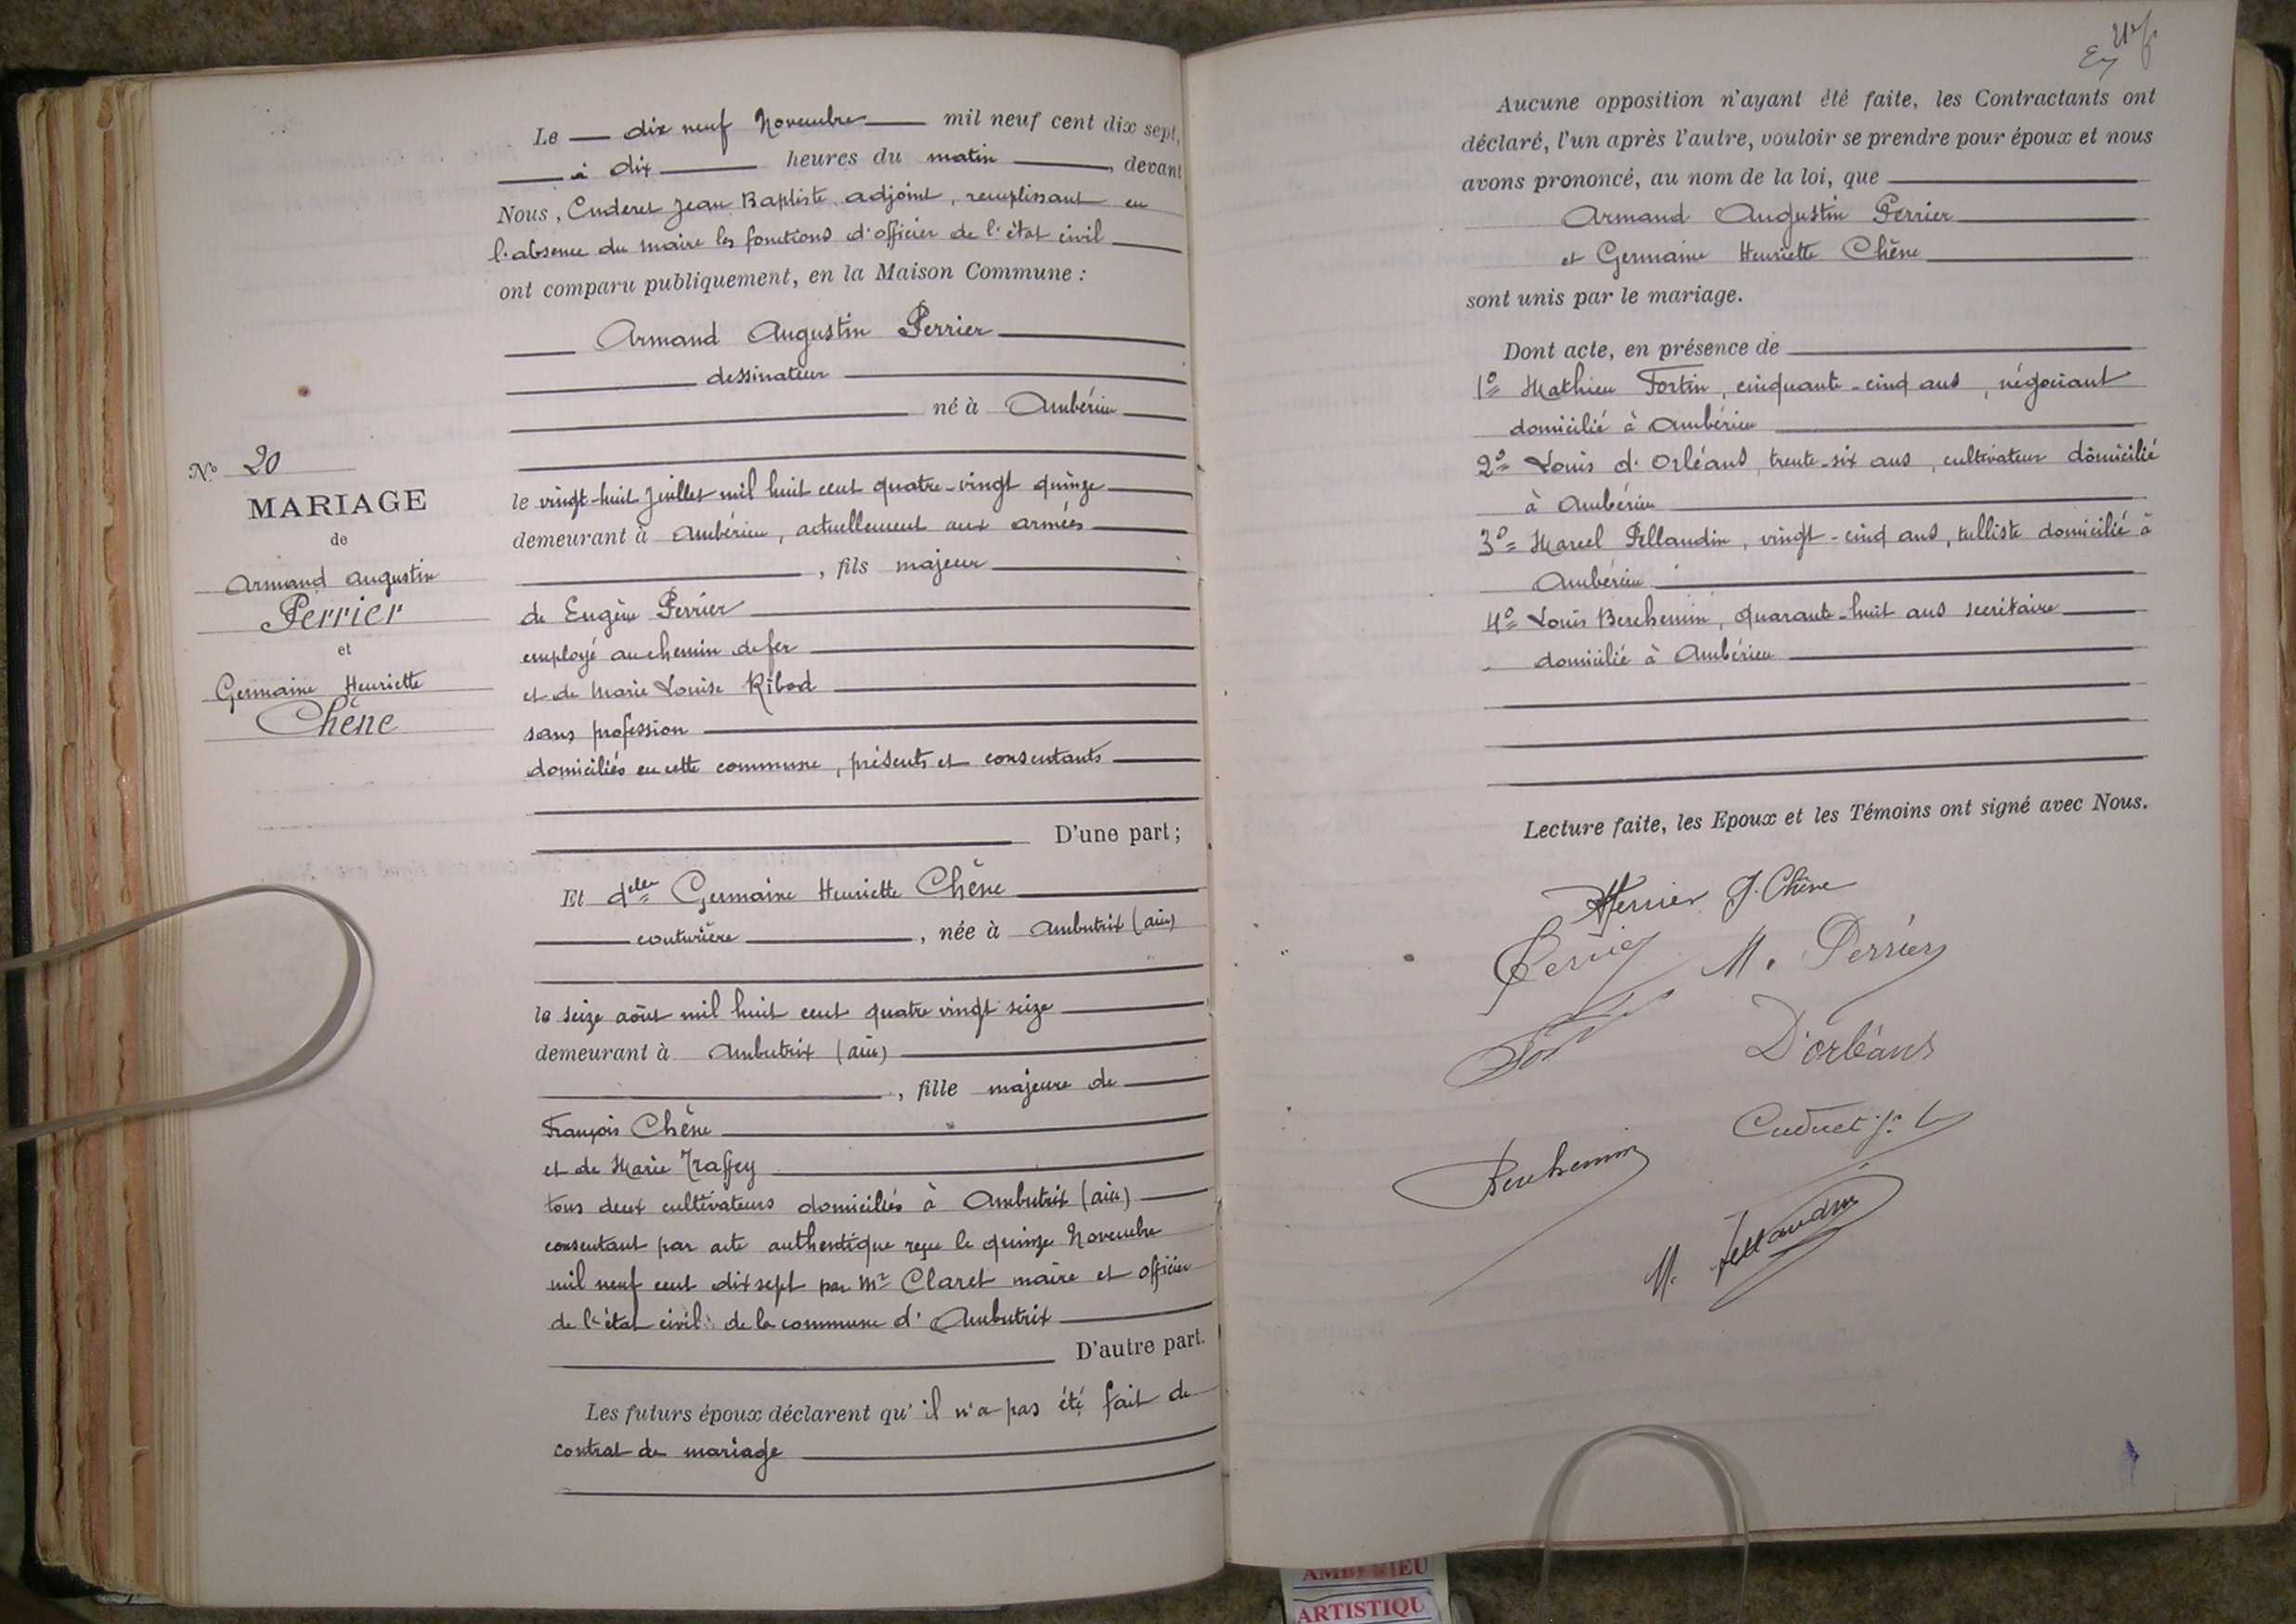 N° 20
MARIAGE
de
Armand Augustin
Perrier
et
Germaine Henriette
Chêne
Le dix neuf Novembre mil neuf cent dix sept,
à dix heures du matin, devant
Nous, Cuderet Jean Baptiste adjoint, remplissant en
l'absence du maire les fonctions d'officier de l'état civil
ont comparu publiquement, en la Maison Commune :
Armand Augustin Perrier
dessinateur
né à Ambérieu
le vingt-huit Juillet mil huit cent quatre-vingt quinze
demeurant à Ambérieu, actuellement aux armées
, fils majeur
de Eugène Perrier
employé au chemin de fer
et de Marie Louise Ribod
sans profession
domiciliés en cette commune, présents et consentants
D'une part ;
Et delle Germaine Henriette Chêne
couturière, née à Ambutrix (ain)
le seize août mil huit cent quatre vingt seize
demeurant à Ambutrix (ain)
, fille majeure de
François Chêne
et de Marie Traffey
tous deux cultivateurs domiciliés à Ambutrix (ain)
consentant par acte authentique reçu le quinze Novembre
mil neuf cent dix sept par Mr Claret maire et officier
de l'état civil de la commune d'Ambutrix
D'autre part.
Les futurs époux déclarent qu'il n'a pas été fait de
contrat de mariage
Aucune opposition n'ayant été faite, les Contractants ont
déclaré, l'un après l'autre, vouloir se prendre pour époux et nous
avons prononcé, au nom de la loi, que
Armand Augustin Perrier
et Germaine Henriette Chêne
sont unis par le mariage.
Dont acte, en présence de
1° Mathieu Fortin, cinquante-cinq ans, négociant
domicilié à Ambérieu
2° Louis d'Orléans, trente-six ans, cultivateur domicilié
à Ambérieu
3° Marcel Pellaudin, vingt-cinq ans, tulliste domicilié à
Ambérieu
4° Louis Berchemin, quarante-huit ans secrétaire
domicilié à Ambérieu
Lecture faite, les Epoux et les Témoins ont signé avec Nous.
APerrier G. Chêne
Perrier M. Perrier
D'orléans
Berchemin
M. Pellaudin
AMBERIEU
ARTISTIQU